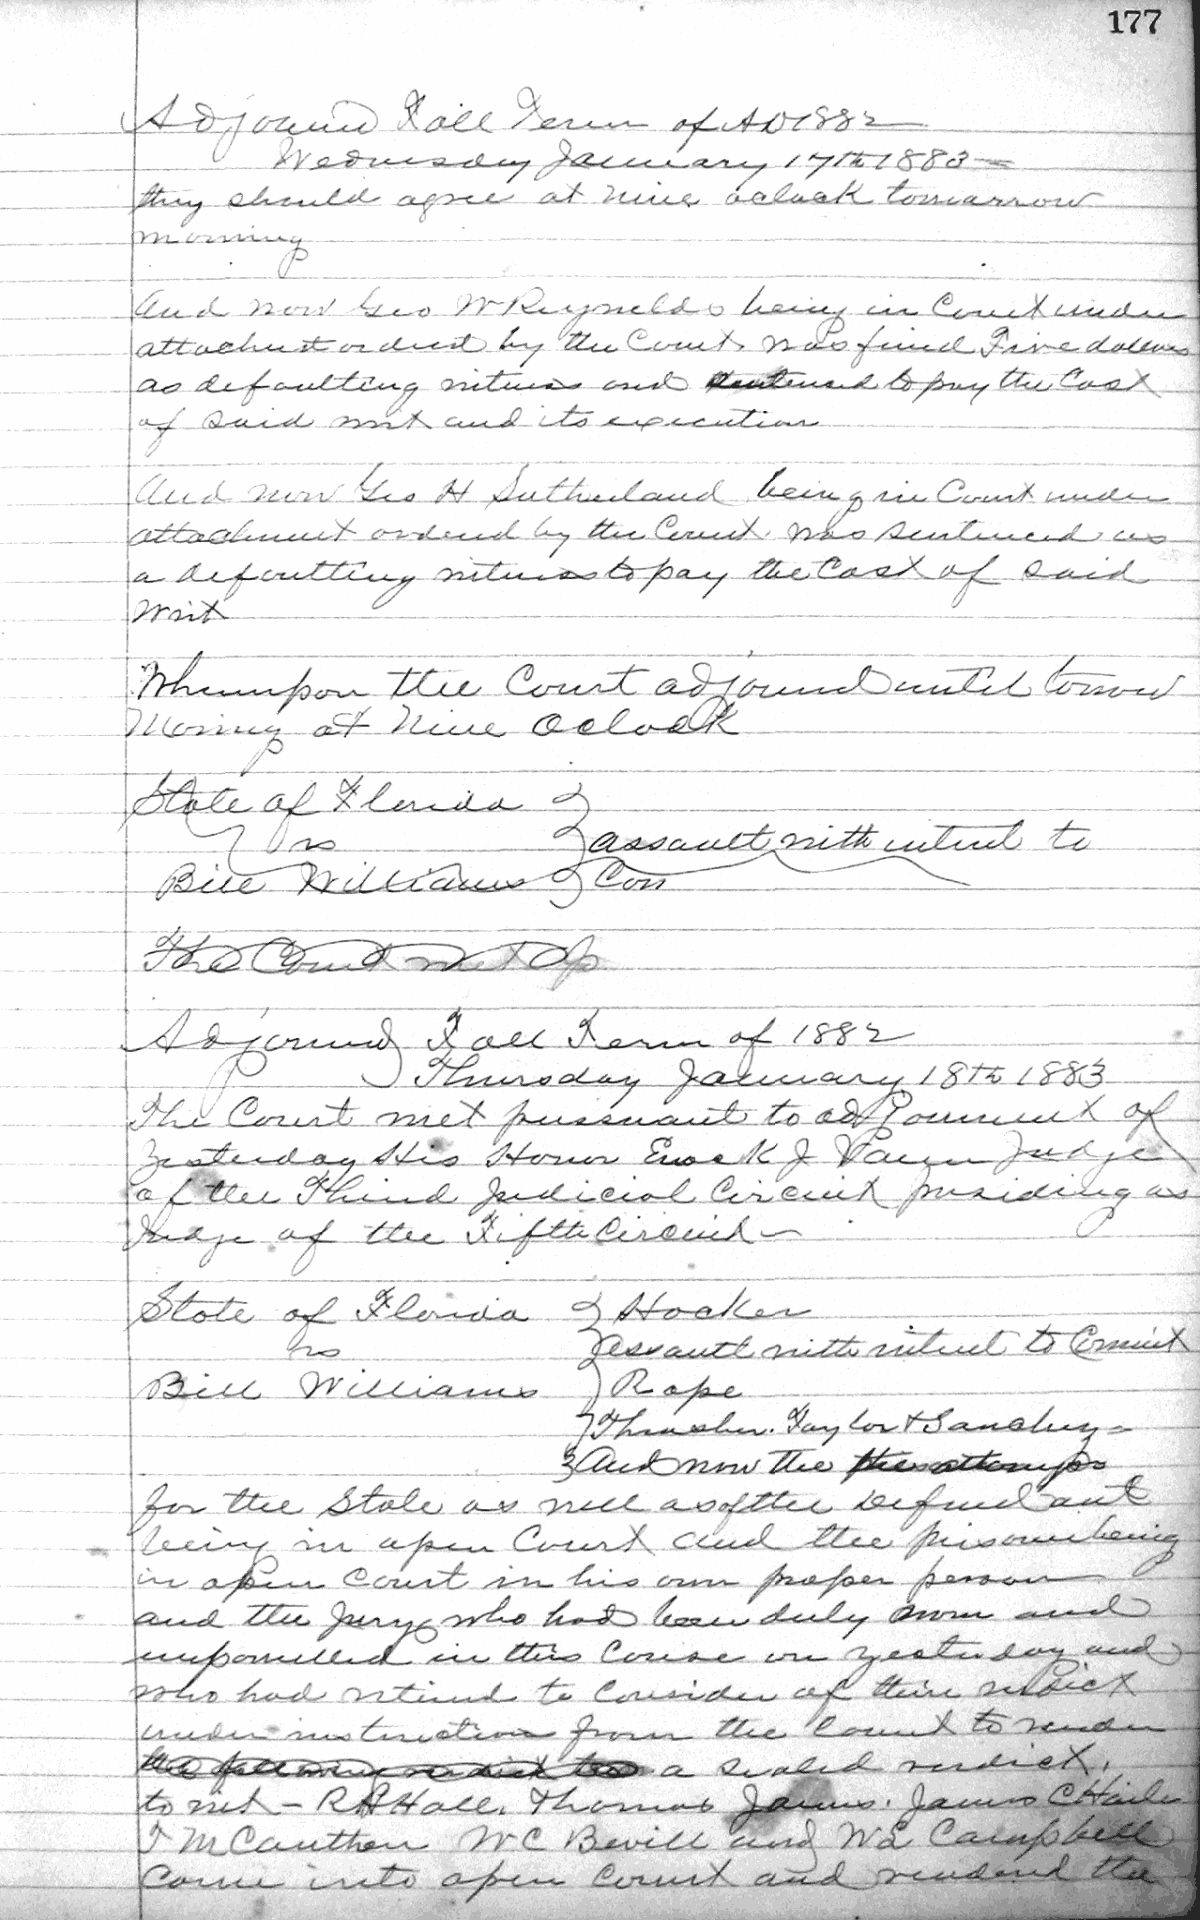 177
Adjourned Fall Term of AD 1882
Wednesday January 17th 1883
they should agree at nine oclock tomorrow
morning
And now Geo W Reynolds being in Court under
attachmt ordered by the Court. was fined Five dollars
as defaulting witness and sentenced to pay the Cost
of said writ and its execution
And now Geo H Sutherland being in Court under
attachment ordered by the Court. was sentenced as
a defaulting witness to pay the Cost of said
writ
Whereupon the Court adjourned until tomorrow
Morning at Nine Oclock
State of Florida
vs
assault with intent to
Bill Williams
Com
The Court met
Adjourned Fall Term of 1882
Thursday January 18th 1883
The Court met pursuant to adjournment of
Yesterday His Honor Enock J Vann Judge
of the Third Judicial Circuit presiding as
Judge of the Fifth Circuit
State of Florida
Hocker
vs
assault with intent to Commit
Bill Williams
Rape
Thrasher. Taylor & Sanchez
And now the attorneys
for the State as well as of the Defendant
being in open Court and the prisoner being
in open Court in his own proper person
and the Jury who had been duly sworn and
impanelled in this Cause on yesterday and
who had retired to Consider of their verdict
under instruction from the Court to render
the following verdict a sealed verdict.
to wit - R H Hall. Thomas James. James C Haile
T McCauthen W C Bevill and W S Campbell
Came into open Court and rendered the